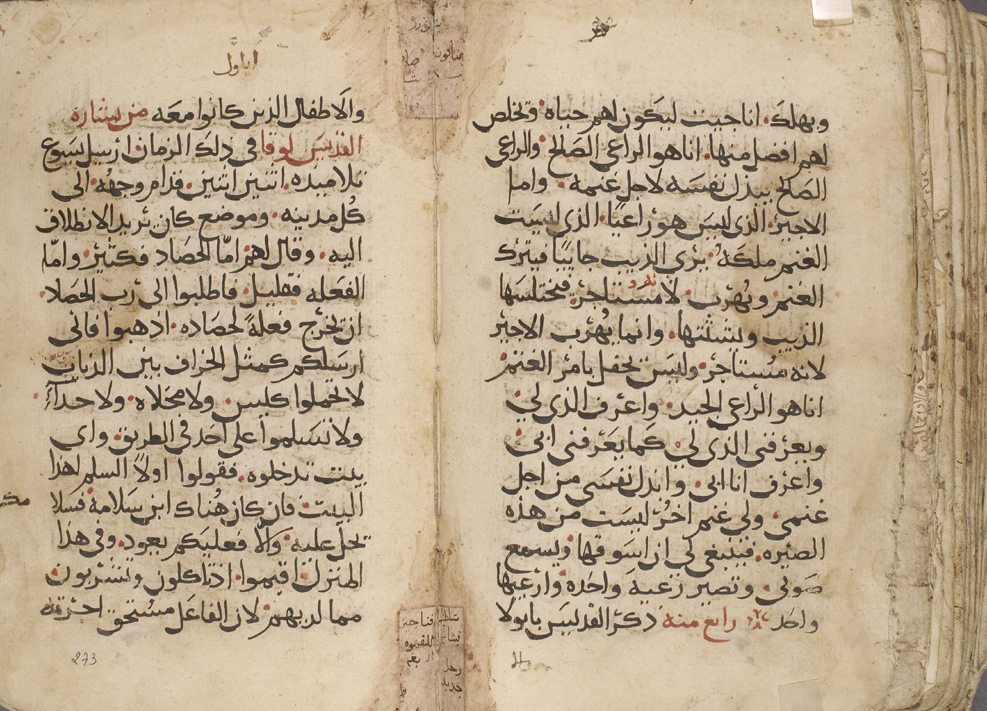 ويهلك. انا جيت ليكون لهم حياه وتخلص
لهم افضل منها. انا هو الراعي الصالح والراعي
الصالح يبذل نفسه لاجل غنمه. واما
الاجير. الذي ليس هو راعيًا. الذي ليست
الغنم ملكه يرى الذيب جاييًا فيترك
الغنم ويهرب. لا مستاجر فيختلسها
الذيب ويشتتها. وانما يهرب الاجير
لانه مستاجر. وليس يحفل بامر الغنم
انا هو الراعي الجيد. واعرف الذي لي
ويعرفني الذي لي. كما يعرفني ابي
واعرف انا ابي. وابذل نفسي من اجل
غنمي. ولي غنم اخر ليست من هذه
الصيره. فينبغي لي ان اسوقها ويسمع
صوتي. وتصير رعيه واحده وارعيها
واحد رابع منه ذكر القديس بابولا
ايلول
والاطفال الذين كانوا معه من بشاره
القديس لوقا في ذلك الزمان ارسل يسوع
تلاميده. اثنين اثنين. قدام وجهه الى
كل مدينه. وموضع كان يريد الانطلاق
اليه. وقال لهم امّا الحصاد فكثير وامّا
الفعله فقليل. فاطلبوا الى رب الحصاد
ان يخرج فعلةً لحصاده. اذهبوا فاني
ارسلكم كمثل الخراف بين الذياب
لا تحملوا كيس. ولا مخلاه. ولا حداء
ولا تسلموا على احد في الطريق. واي
بيت تدخلوه. فقولوا اولاً السلم لهذا
البيت. فان كان هناك ابن سلامة فسلا
تحل عليه. والّا فعليكم يعود. وفي هذا
المنزل اقيموا. اذ تاكلون وتشربون
مما لديهم. لان الفاعل مستحق اجرته
273